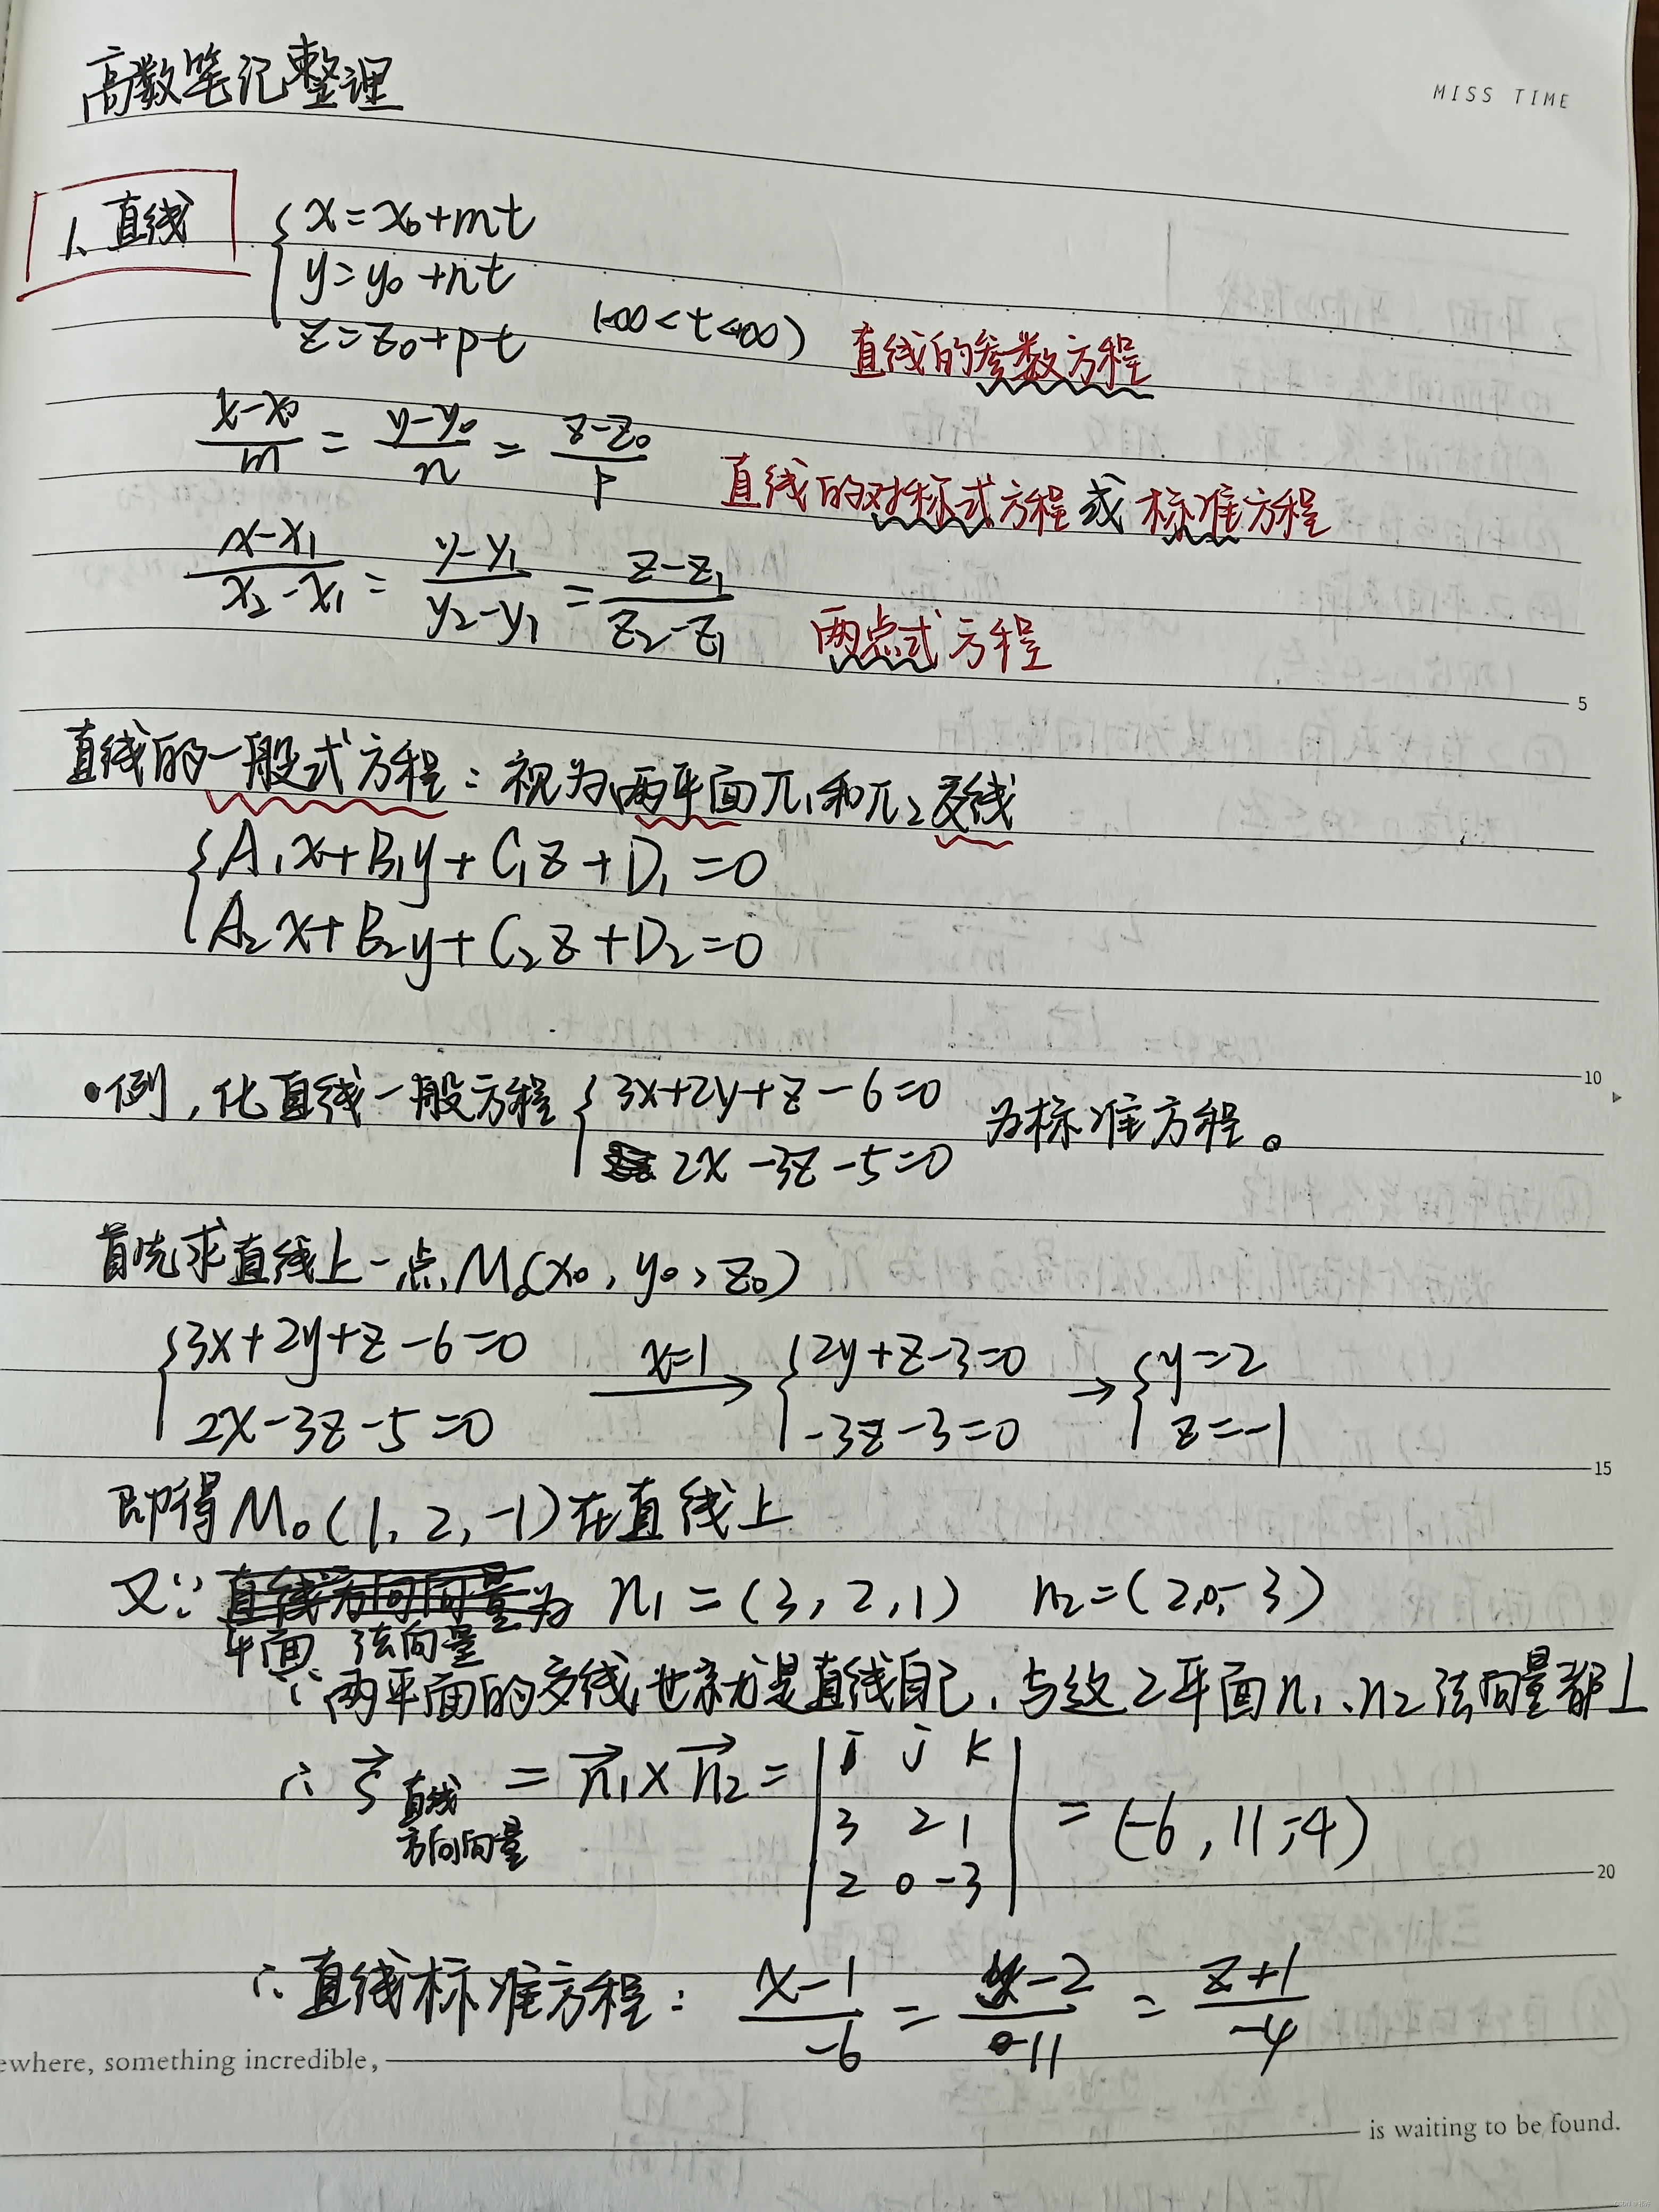 高数笔记整理
MISS TIME
1、直线
{x=x₀+mt
y=y₀+nt
z=z₀+pt (-∞<t<+∞) 直线的参数方程
(x-x₀)/m = (y-y₀)/n = (z-z₀)/p 直线的对称式方程或标准方程
(x-x₁)/(x₂-x₁) = (y-y₁)/(y₂-y₁) = (z-z₁)/(z₂-z₁) 两点式方程
5
直线的一般式方程：视为两平面π₁和π₂交线
{A₁x+B₁y+C₁z+D₁=0
A₂x+B₂y+C₂z+D₂=0
10
•例,化直线一般方程{3x+2y+z-6=0 为标准方程。
2x-3z-5=0
首先求直线上一点M₀(x₀,y₀,z₀)
{3x+2y+z-6=0 x=1→ {2y+z-3=0 → {y=2
2x-3z-5=0 -3z-3=0 z=-1
15
即得M₀(1,2,-1)在直线上
又∵ 直线方向向量为 n₁=(3,2,1) n₂=(2,0,-3)
平面 法向量
∵两平面的交线也就是直线自己,与这2平面n₁、n₂法向量都⊥
∴ s⃗ 直线方向向量 = n⃗₁×n⃗₂ = |i j k
3 2 1
2 0 -3| = (-6,11,-4)
20
∴直线标准方程: (x-1)/-6 = (y-2)/11 = (z+1)/-4
ewhere, something incredible,
is waiting to be found.